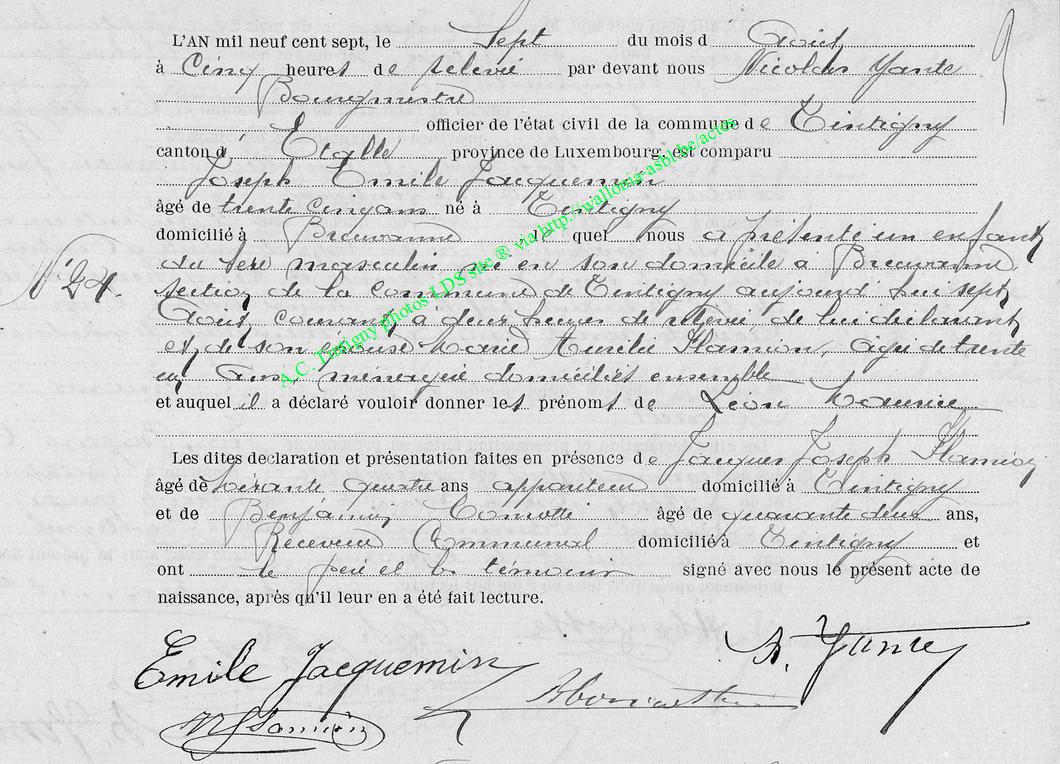 L'AN mil neuf cent sept, le Sept du mois d Août
à Cinq heures de relevée par devant nous Nicolas Yante
Bourgmestre
officier de l'état civil de la commune de Tintigny
canton d' Etalle province de Luxembourg, est comparu
Joseph Emile Jacquemin
âgé de trente cinq ans né à Tintigny
domicilié à Breuvanne le quel nous a présenté un enfant
du sexe masculin né en son domicile à Breuvanne,
N° 24. section de la commune de Tintigny aujourd'hui sept
Août courant à deux heures de relevée, de lui déclarant
et de son épouse Marie Aurélie Flamion, âgée de trente
un ans, ménagère domiciliés ensemble
et auquel il a déclaré vouloir donner les prénoms de Léon Maurice
Les dites declaration et présentation faites en présence de Jacques Joseph Flamion
âgé de soixante quatre ans appariteur domicilié à Tintigny
et de Benjamin âgé de quarante deux ans,
Receveur Communal domicilié à Tintigny et
ont le père et les témoins signé avec nous le présent acte de
naissance, après qu'il leur en a été fait lecture.
Emile Jacquemin
N. Yante
Flamion
A.C. Tintigny photos LDS site ® via http://wallonia-asbl.be/actes